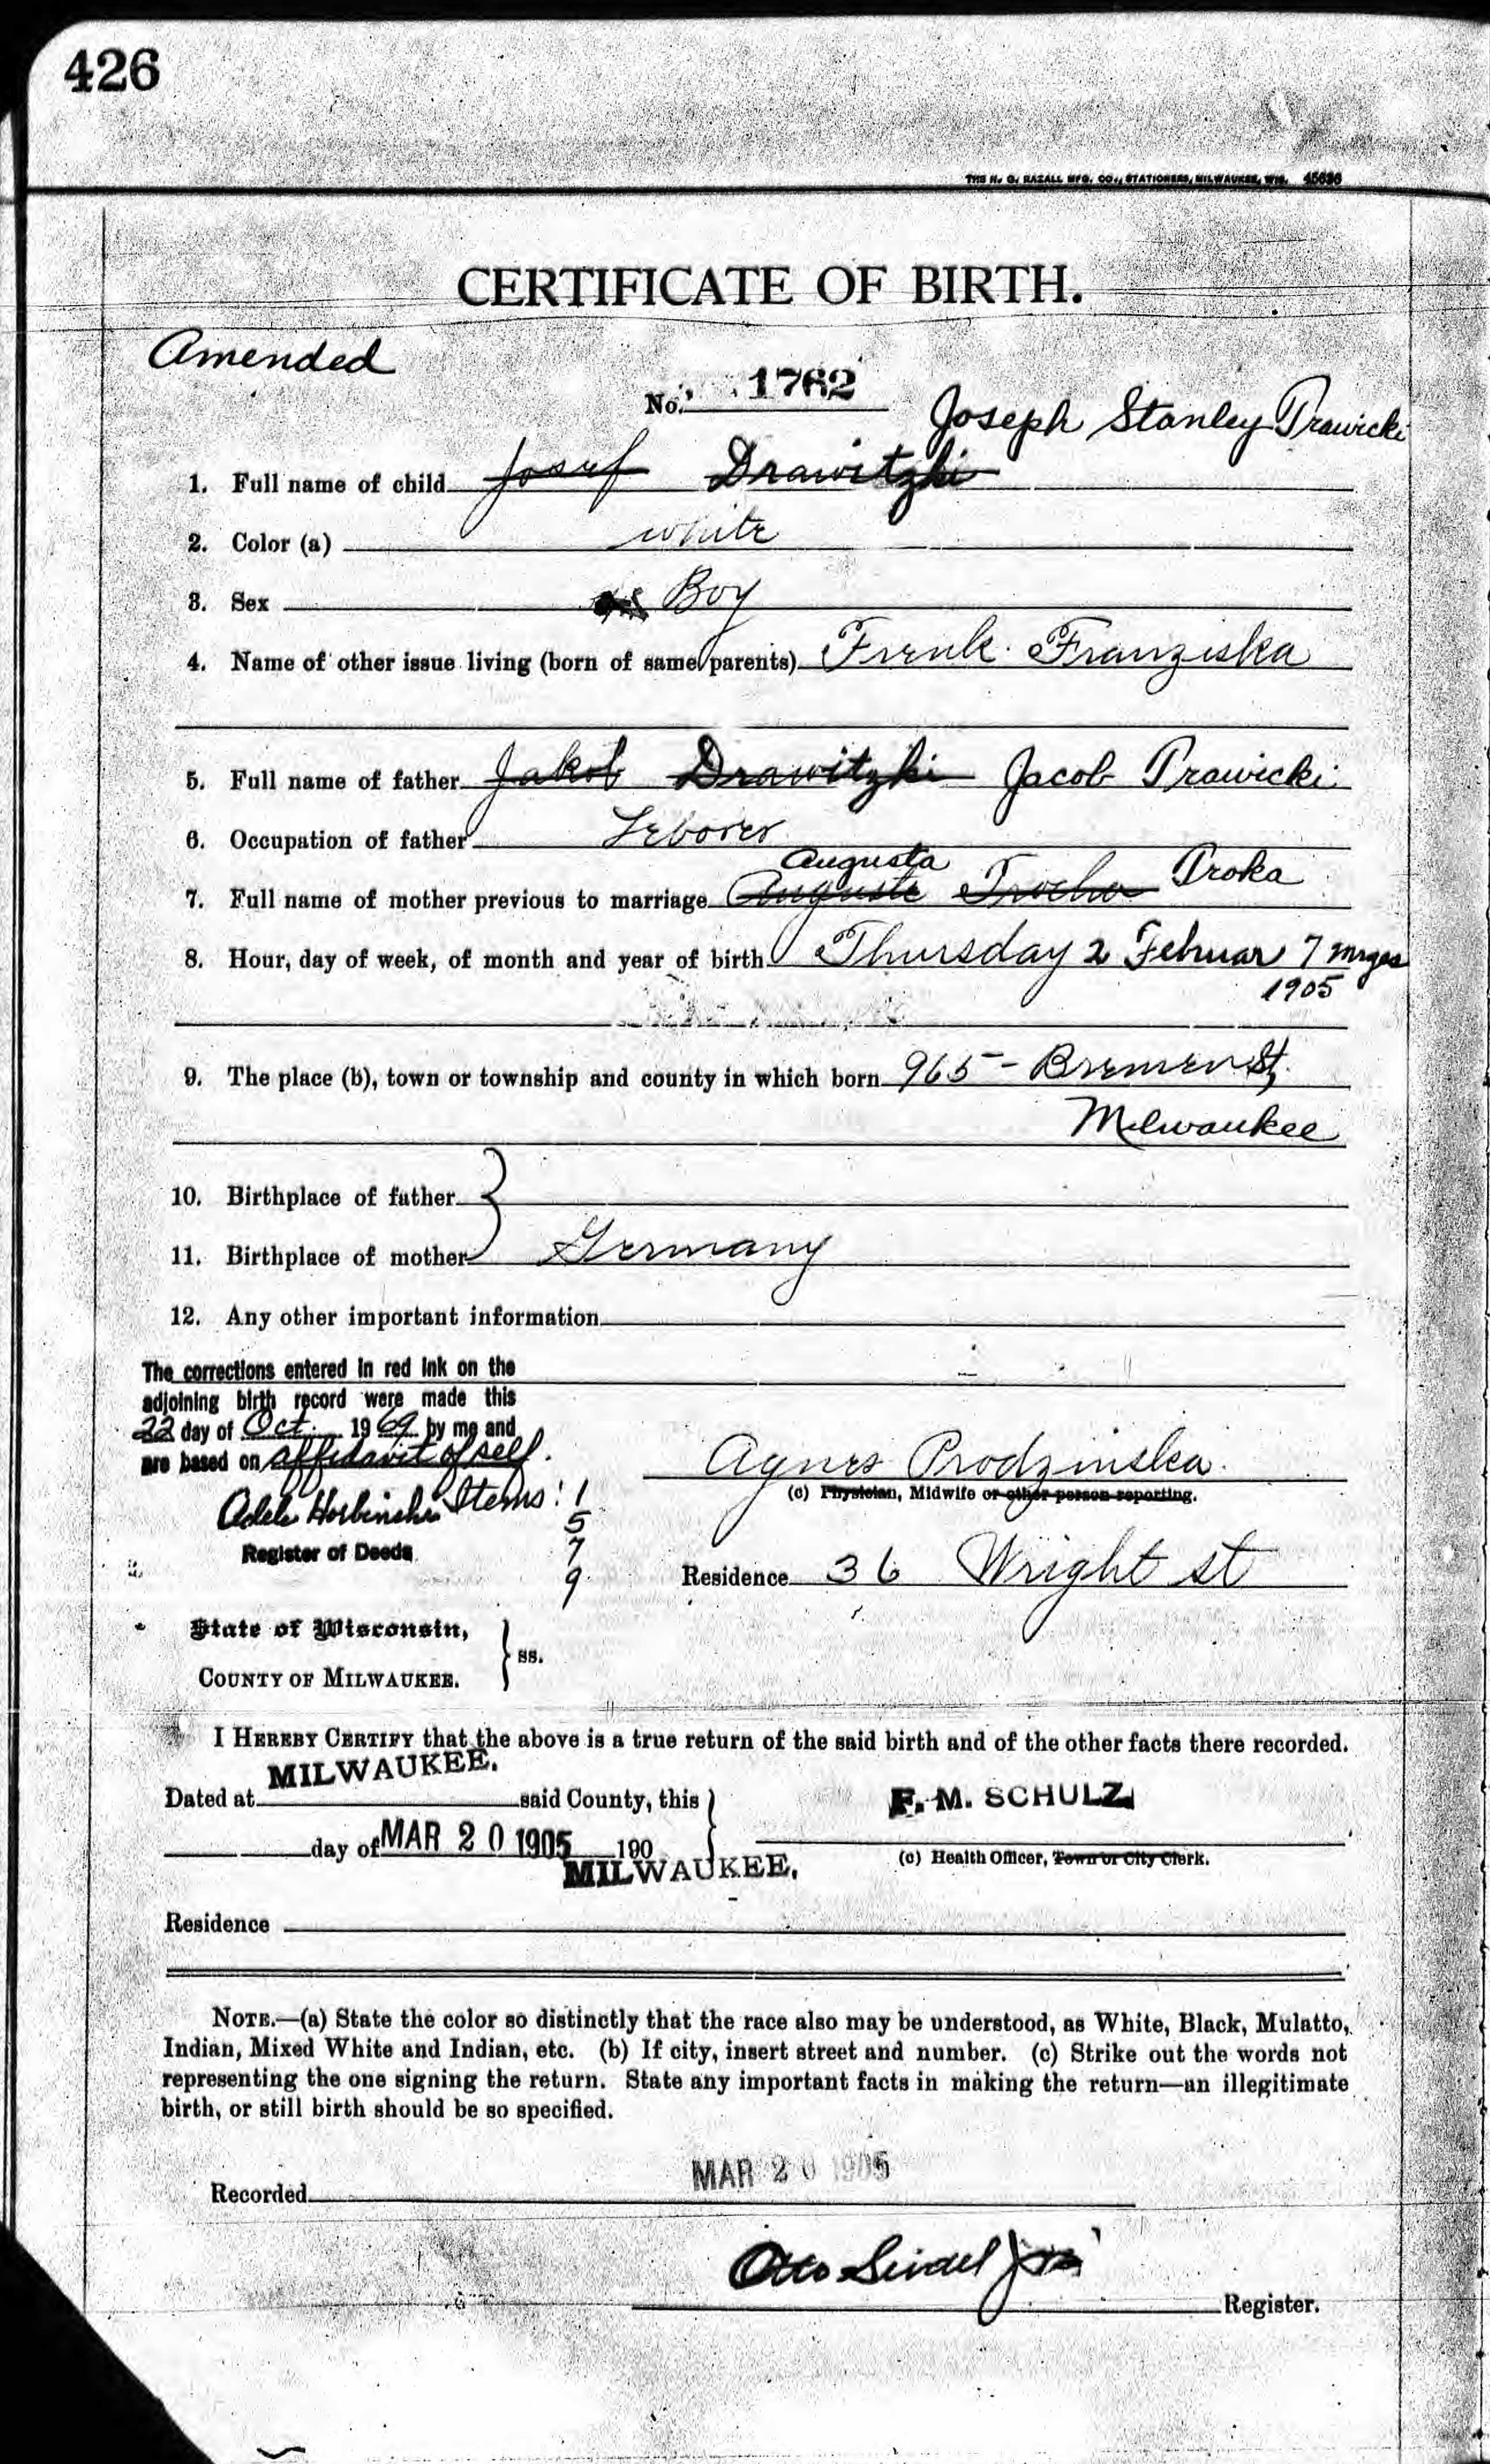 426
THE H. G. RAZALL MFG. CO., STATIONERS, MILWAUKEE, WIS. 45636
CERTIFICATE OF BIRTH.
Amended
No. 1762
Joseph Stanley Trawicki
1. Full name of child Josef Drawitzki
2. Color (a) white
3. Sex Boy
4. Name of other issue living (born of same parents) Frenk Franziska
5. Full name of father Jakob Drawitzki Jacob Trawicki
6. Occupation of father Leborer
Augusta
7. Full name of mother previous to marriage Auguste Trocha Troka
8. Hour, day of week, of month and year of birth Thursday 2 Februar 7
1905
9. The place (b), town or township and county in which born 965 - Bremen St,
Milwaukee
10. Birthplace of father
11. Birthplace of mother Germany
12. Any other important information
The corrections entered in red ink on the
adjoining birth record were made this
22 day of Oct. 1969 by me and
are based on affidavit of self.
Items: 1
5
7
9
Register of Deeds
Agnes Prodzinska
(c) Physician, Midwife or other person reporting.
Residence 36 Wright st
State of Wisconsin,
COUNTY OF MILWAUKEE. } ss.
I HEREBY CERTIFY that the above is a true return of the said birth and of the other facts there recorded.
Dated at MILWAUKEE. said County, this
F. M. SCHULZ
day of MAR 20 1905 190
(c) Health Officer, Town or City Clerk.
MILWAUKEE.
Residence
NOTE.—(a) State the color so distinctly that the race also may be understood, as White, Black, Mulatto,
Indian, Mixed White and Indian, etc. (b) If city, insert street and number. (c) Strike out the words not
representing the one signing the return. State any important facts in making the return—an illegitimate
birth, or still birth should be so specified.
Recorded MAR 20 1905
Otto Seidel Jr
Register.